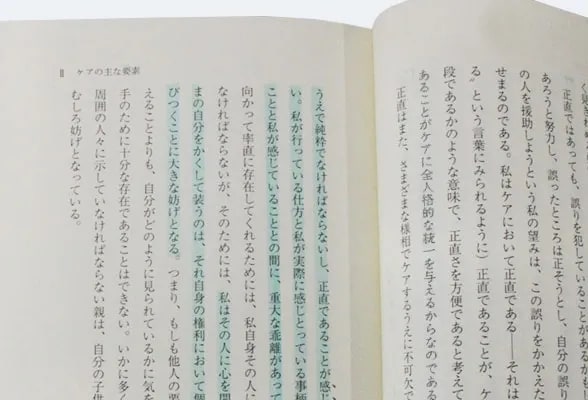 正直ではあっても、誤りを犯していることがあるか
あろうと努力し、誤ったところは正そうとし、
の人を援助しようという私の望みは、この誤りをかかえた
せまるのである。私はケアにおいて正直である――それは
る〟という言葉にみられるように）正直であることが、ケ
段であるかのような意味で、正直さを方便であると考えて
あることがケアに全人格的な統一を与えるからなのである
正直はまた、さまざまな様相でケアするうえに不可欠で
Ⅱ ケアの主な要素
うえで純粋でなければならないし、正直であることが感じ
い。私が行っている仕方と私が実際に感じとっている事柄
ことと私が感じていることとの間に、重大な乖離があって
向かって率直に存在してくれるためには、私自身その人に
なければならないが、そのためには、私はその人に心を開
まの自分をかくして装うのは、それ自身の権利において個
びつくことに大きな妨げとなる。つまり、もしも他人の要
えることよりも、自分がどのように見られているかに気を
手のために十分な存在であることはできない。いかに多く
周囲の人々に示していなければならない親は、自分の子供
むしろ妨げとなっている。